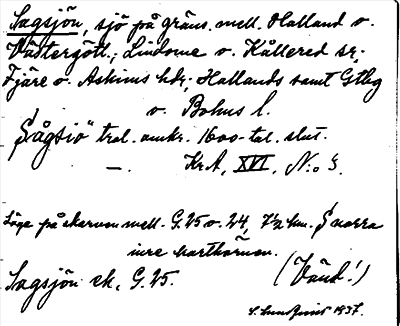 Sagsjön, sjö på gräns. mell. Halland o.
Västergötl.; Lindome o. Kållered sr;
Fjäre o. Askims hdr; Hallands samt Gtbg
o. Bohus l.
"Sågsiö" trol. omkr. 1600-tal. slut.
—. Kr.A. XVI, N:o 3.
Läge på skarven mell. G.25 o. 24, 7½ km. S norra
inre karthörnen.
Sagsjön ek. G. 25. (Vänd!)
S. Lundquist 1937.